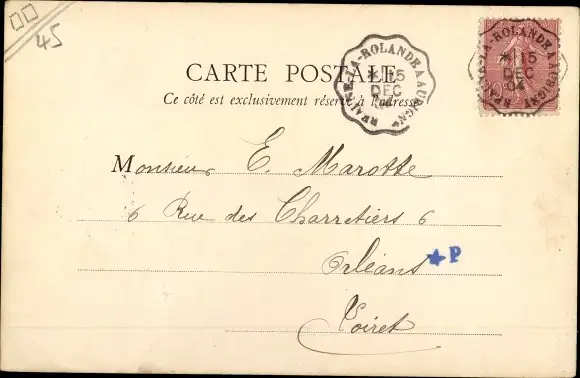 45
CARTE POSTALE
Ce côté est exclusivement réservé à l'adresse
BEAUNE-LA-ROLANDE A AUBIGNY
15
DEC
04
LA-ROLANDE A AUBIGNY
15
DEC
04
10
Monsieur E. Marotte
6 Rue des Charretiers 6
Orléans
P
Loiret